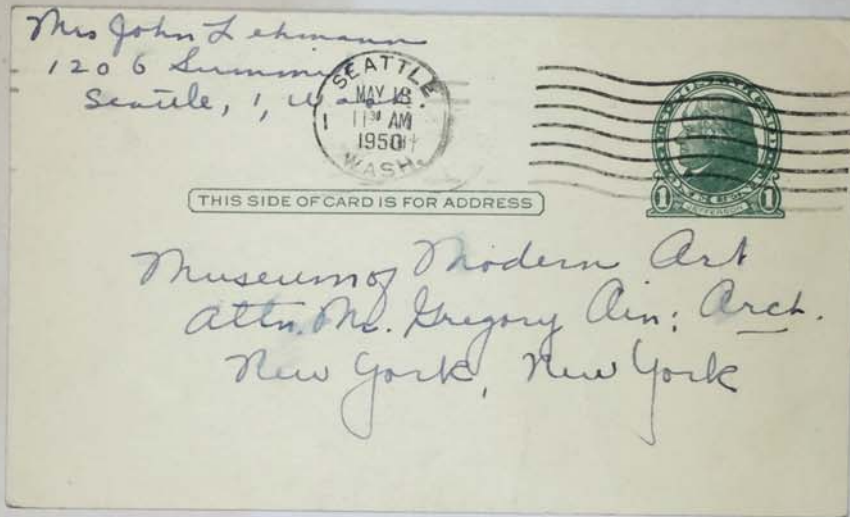 Mrs John Lehmann
1206 Summi
Seattle, 1, Wash.
SEATTLE
MAY 18
11 30 AM
1950
WASH.
1
THIS SIDE OF CARD IS FOR ADDRESS
1 JEFFERSON 1
Museum of Modern Art
Attn. Mr. Gregory Ain: Arch.
New York, New York